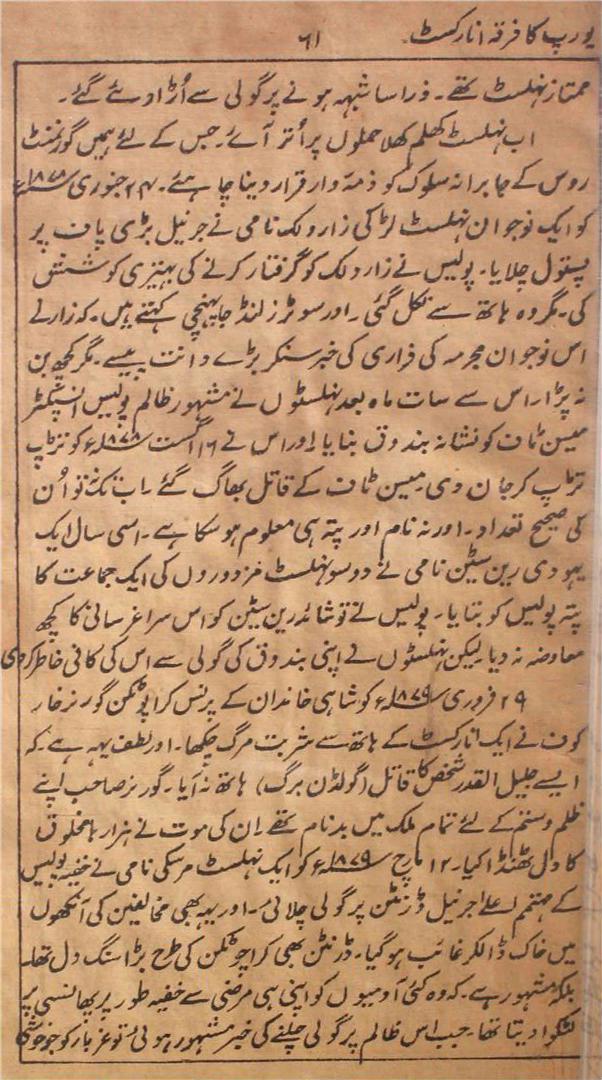 یورپ کا فرقہ انارکسٹ۔ ۶۱
ممتاز نہلسٹ تھے۔ ذرا سا شبہہ ہونے پر گولی سے اُڑا دئے گئے۔
اب نہلسٹ کھلم کھلا حملوں پر اُتر آئے۔ جس کے لئے ہمیں گورنمنٹ
روس کے جابرانہ سلوک کو ذمہ دار قرار دینا چاہئے۔ ۲۴ جنوری ۱۸۷۸ء
کو ایک نوجوان نہلسٹ لڑکی زار ولک نامی نے جرنیل بڑی پاف پر
پستول چلایا۔ پولیس نے زار ولک کو گرفتار کرنے کی بہتیری کوشش
کی۔ مگر وہ ہاتھ سے نکل گئی۔ اور سوٹزرلنڈ جا پہنچی کہتے ہیں۔ کہ زار نے
اس نوجوان مجرمہ کی فراری کی خبر سنکر بڑے دانت پیسے۔ مگر کچھ بن
نہ پڑا۔ اس سے سات ماہ بعد نہلسٹوں نے مشہور ظالم پولیس انسپکٹر
میسن ٹاف کو نشانہ بندوق بنایا۔ اور اس نے ۱۶ اگست ۱۸۷۸ء کو تڑپ
تڑپ کر جان دی۔ میسن ٹاف کے قاتل بھاگ گئے۔ اب تک نہ تو اُن
کی صحیح تعداد۔ اور نہ نام اور پتہ ہی معلوم ہو سکا ہے۔ اسی سال ایک
یہودی رین سٹین نامی نے دو سو نہلسٹ مزدوروں کی ایک جماعت کا
پتہ پولیس کو بتایا۔ پولیس نے تو شائد رین سٹین کو اس سراغرسانی کا کچھ
معاوضہ نہ دیا۔ لیکن نہلسٹوں نے اپنی بندوق کی گولی سے اس کی کافی خاطر کر دی
۲۹ فروری ۱۸۷۹ء کو شاہی خاندان کے پرنس کراپوٹکن گورنر خار
کوف نے ایک انارکسٹ کے ہاتھ سے شربت مرگ چکھا۔ اور لطف یہہ ہے۔ کہ
ایسے جلیل القدر شخص کا قاتل (گولڈن برگ) ہاتھ نہ آیا۔ گورنر صاحب اپنے
ظلم و ستم کے لئے تمام ملک میں بدنام تھے۔ ان کی موت نے ہزارہا مخلوق
کا دل ٹھنڈا کیا۔ ۱۲ مارچ ۱۸۷۹ء کو ایک نہلسٹ مرسکی نامی نے خفیہ پولیس
کے مہتمم اعلےٰ جرنیل ڈرنٹن پر گولی چلائی۔ اور یہہ بھی مخالفین کی آنکھوں
میں خاک ڈالکر غائب ہو گیا۔ ڈرنٹن بھی کراپوٹکن کی طرح بڑا سنگ دل تھا۔
بلکہ مشہور ہے۔ کہ وہ کئی آدمیوں کو اپنی ہی مرضی سے خفیہ طور پر پھانسی پر
لٹکوا دیتا تھا۔ جب اس ظالم پر گولی چلنے کی خبر مشہور ہوئی تو غربا کو جو خوشی